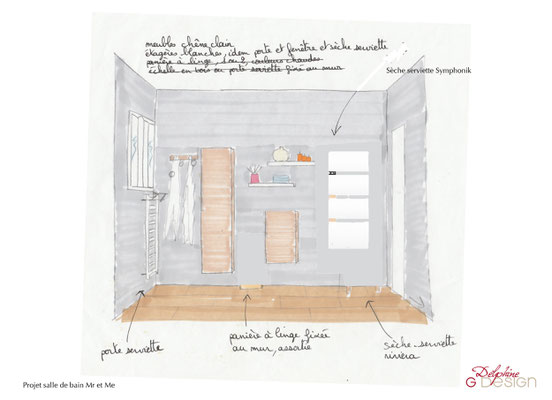 meubles chêne clair
étagères blanches, idem porte et fenêtre et sèche serviette
panière à linge, 1 ou 2, couleurs chaudes
échelle en bois ou porte serviette fixé au mur
Sèche serviette Symphonik
porte serviette
panière à linge fixée
au mur, assortie
sèche-serviette
riviera
Projet salle de bain Mr et Me
Delphine
G DESIGN